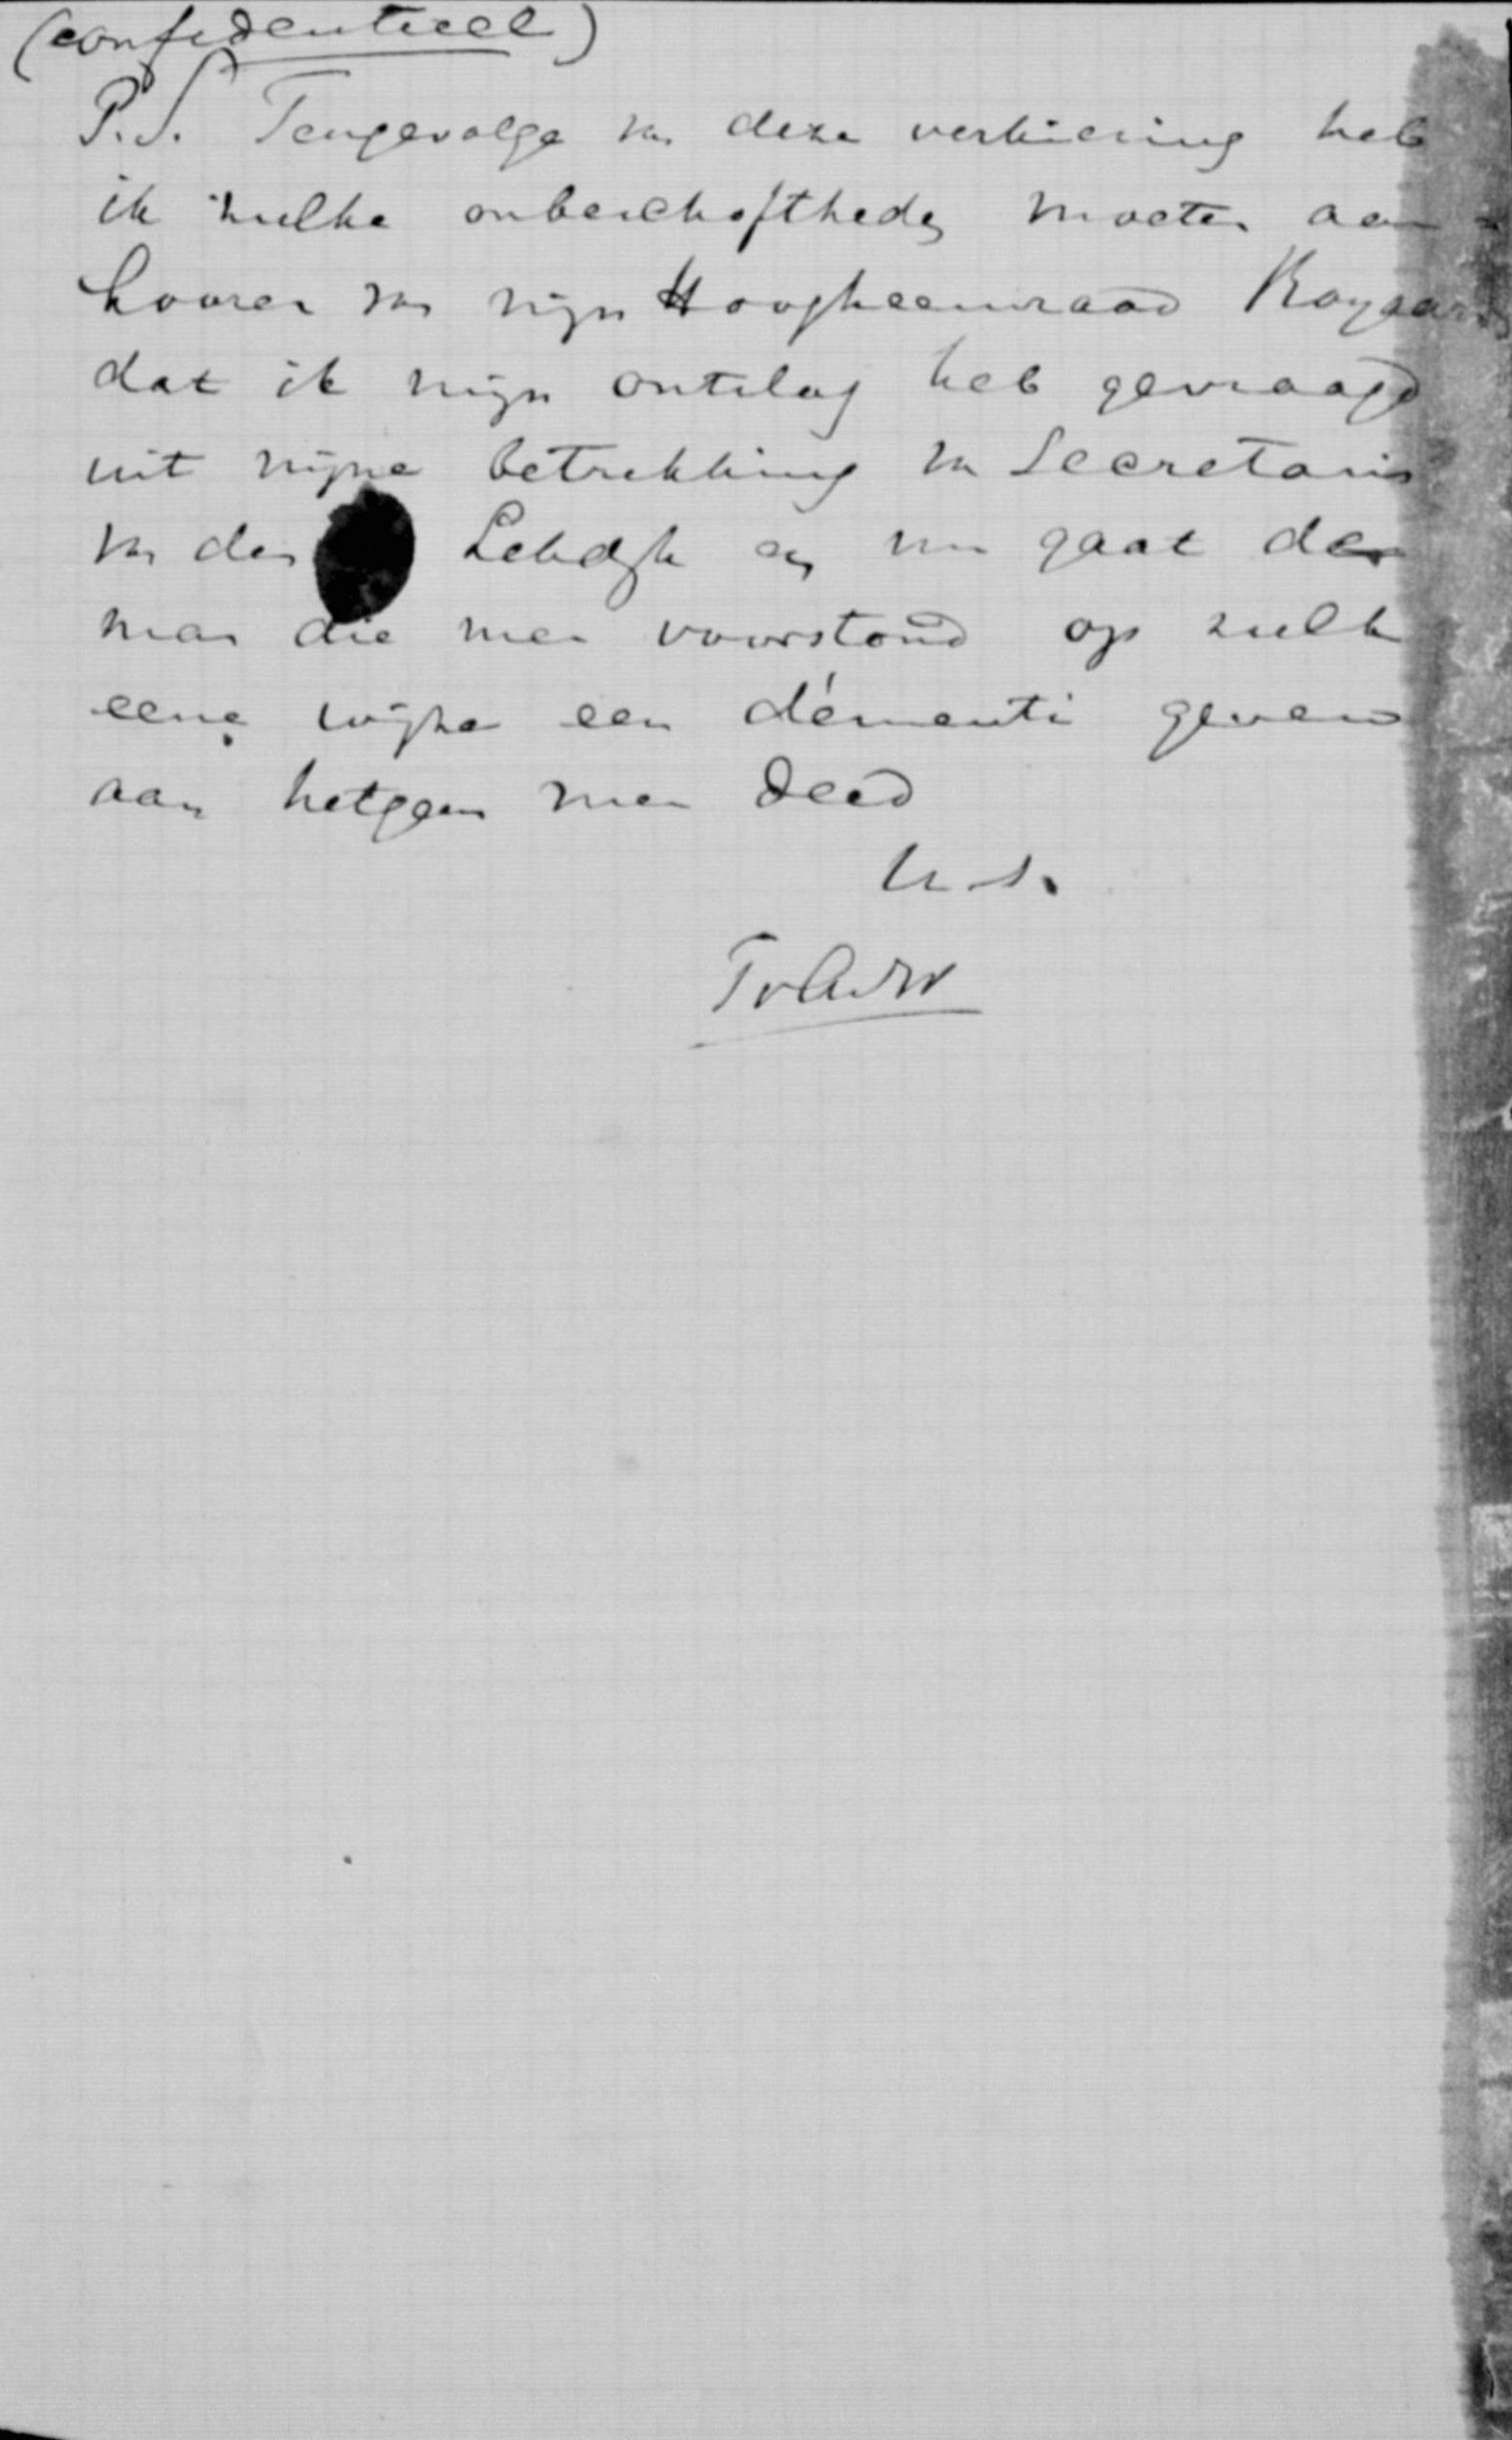 (confidentieel)
P.S. Tengevolge van deze verkiezing heb
ik zulke onbeschoftheden moeten aan-
hooren van mijn Hoogheemraad Royaards
dat ik mijn ontslag heb gevraagd
uit mijne betrekking van Secretaris
van den Lekdijk en nu gaat de
man die men voorstond op zulk
eene wijze een démenti geven
aan hetgeen men deed
t.t.